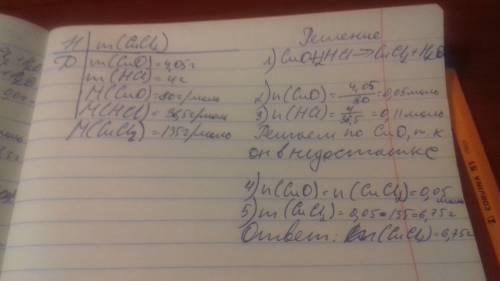 Н | m(CuCl₂)
Д m(CuO)=4,05г
m(HCl)=4г
M(CuO)=80г/моль
M(HCl)=36,5г/моль
M(CuCl₂)=135г/моль
Решение
1) CuO+2HCl→CuCl₂+H₂O
2) n(CuO)=4,05/80=0,05моль
3) n(HCl)=4/36,5=0,11моль
Решаем по CuO, т.к
он в недостатке
4) n(CuO)=n(CuCl₂)=0,05 моль
5) m(CuCl₂)=0,05*135=6,75г
Ответ: m(CuCl₂)=6,75г